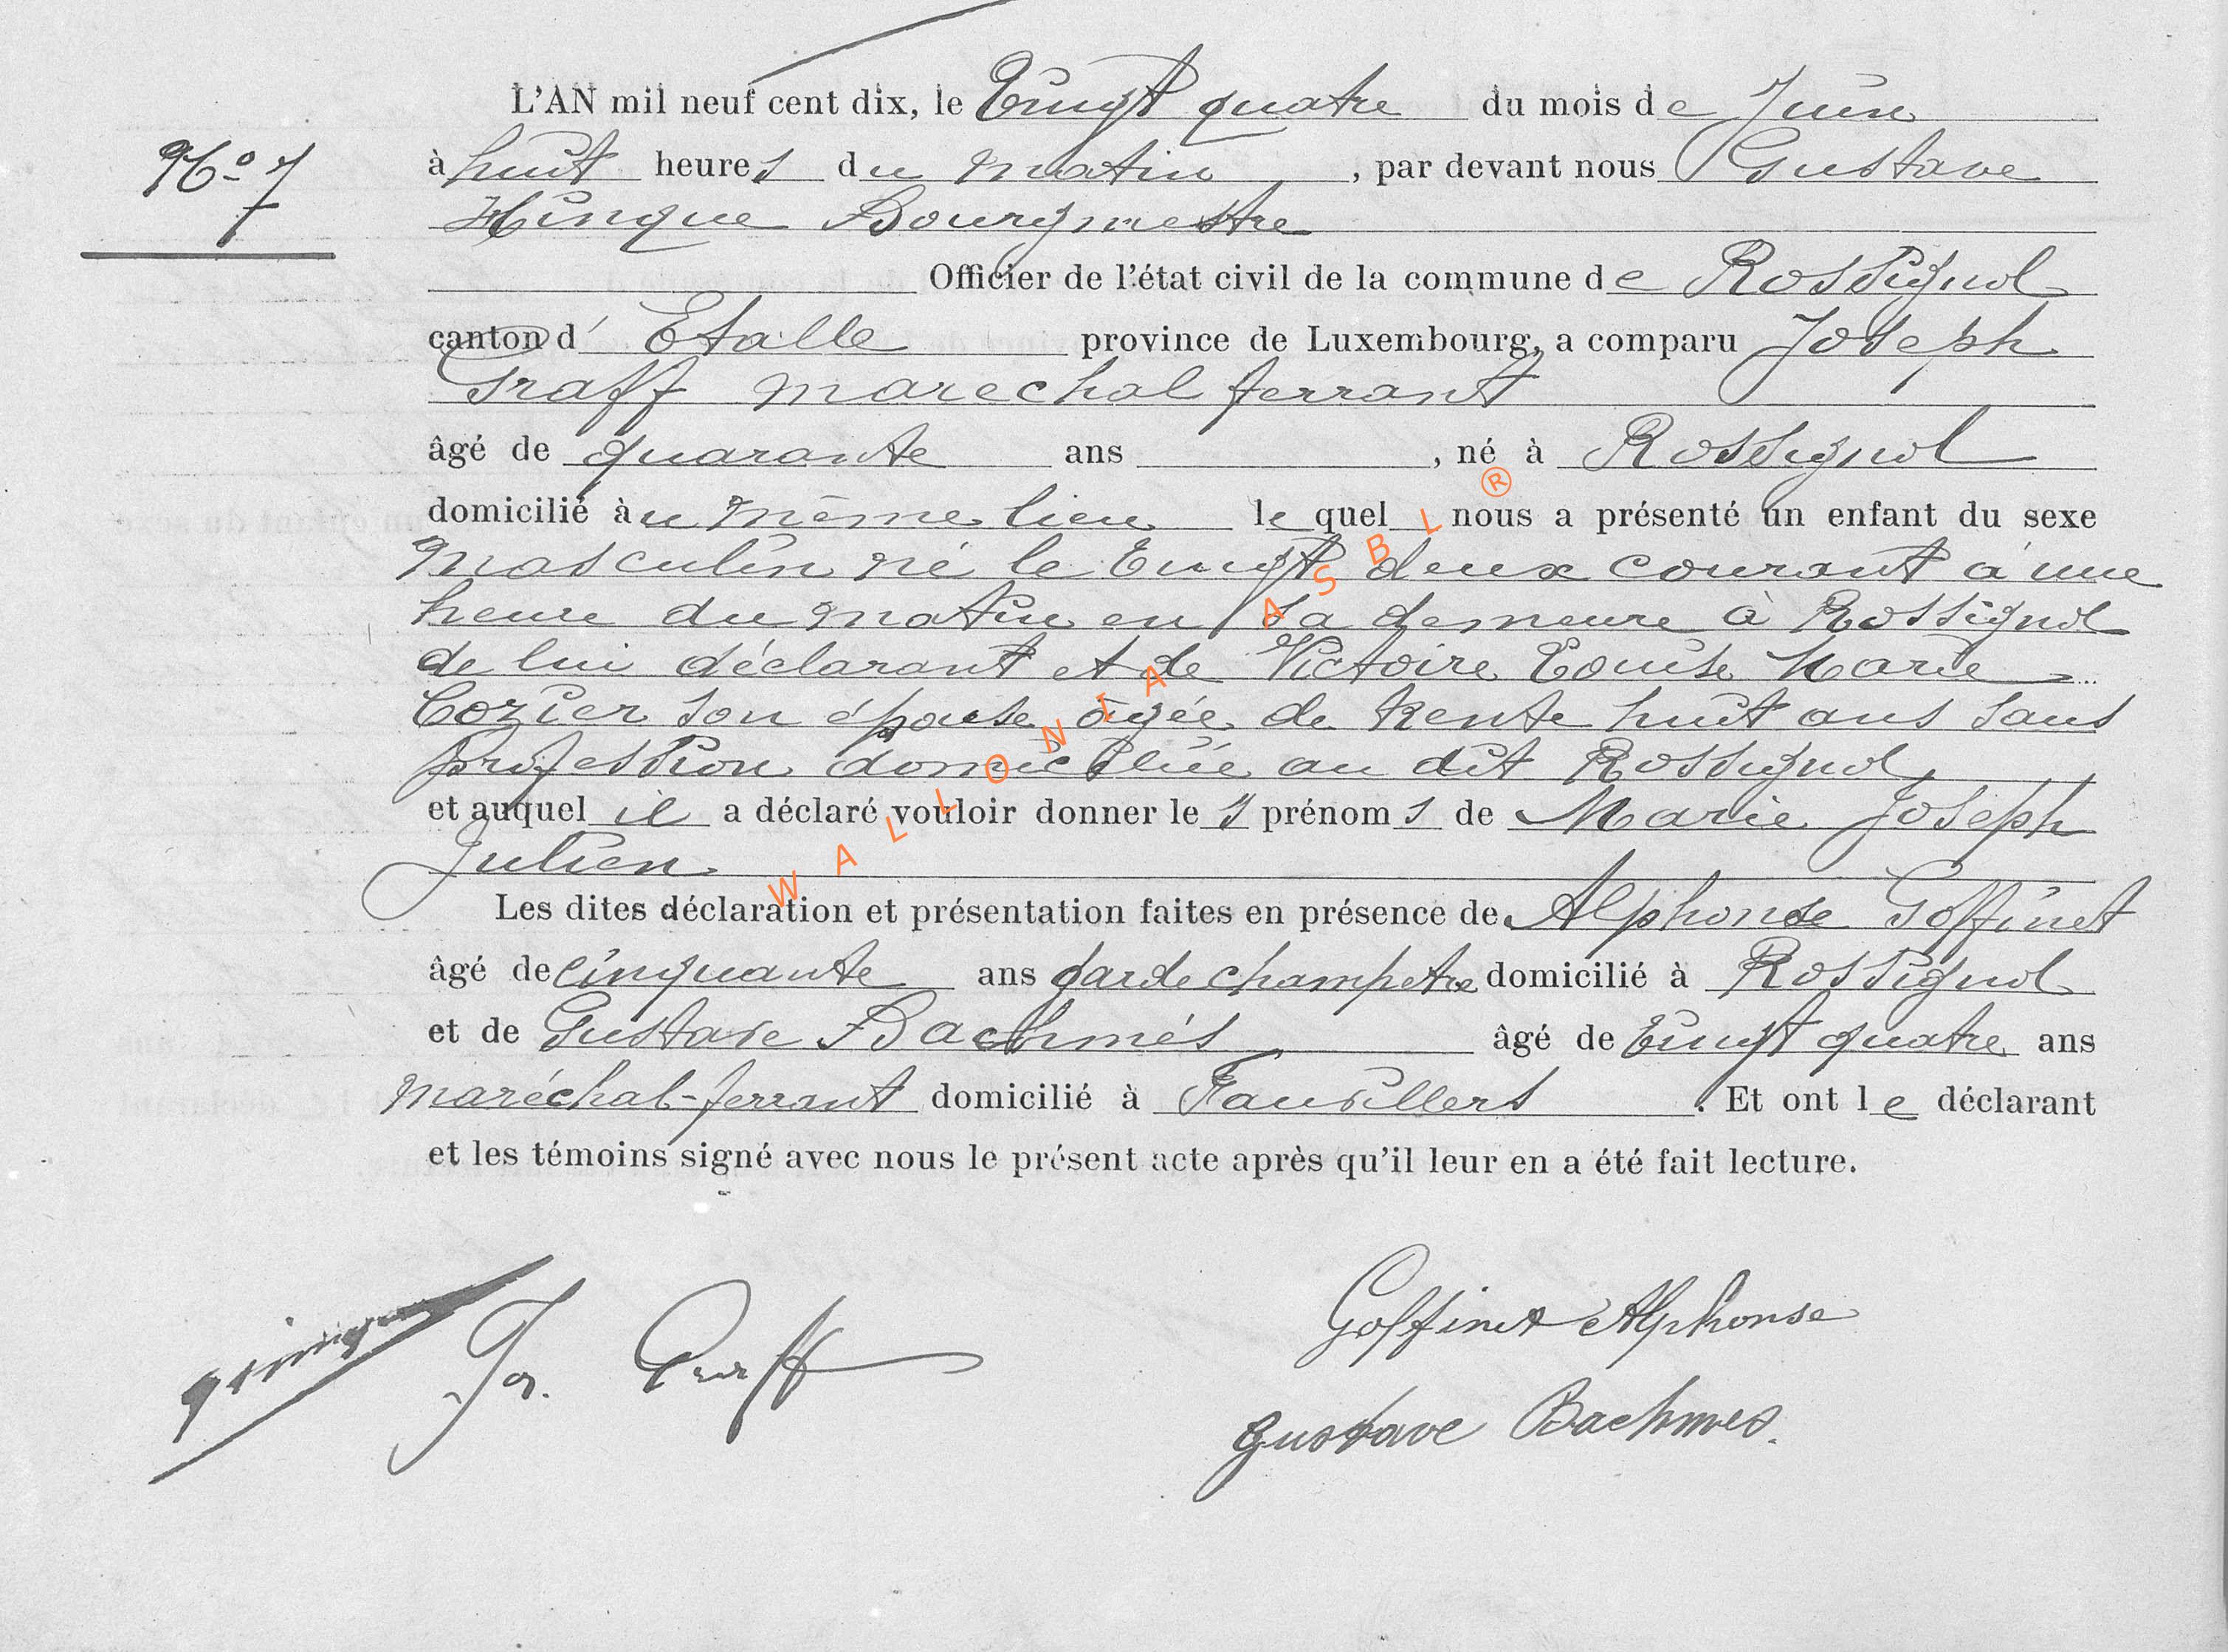 L'AN mil neuf cent dix, le Vingt quatre du mois de Juin
N° 7
à huit heures du matin, par devant nous Gustave
Hinque Bourgmestre
Officier de l'état civil de la commune de Rossignol
canton d'Etalle province de Luxembourg, a comparu Joseph
Graff marechal ferrant
âgé de quarante ans, né à Rossignol
domicilié àu même lieu lequel nous a présenté un enfant du sexe
masculin né le vingt deux courant à une
heure du matin en sa demeure à Rossignol
de lui déclarant et de Victoire Louise Marie
Cozier son épouse âgée de trente huit ans sans
profession domiciliée au dit Rossignol
et auquel il a déclaré vouloir donner les prénoms de Marie Joseph
Julien
Les dites déclaration et présentation faites en présence de Alphonse Goffinet
âgé de cinquante ans garde champetre domicilié à Rossignol
et de Gustave Bachmés âgé de Vingt quatre ans
maréchal-ferrant domicilié à Fauvillers. Et ont le déclarant
et les témoins signé avec nous le présent acte après qu'il leur en a été fait lecture.
Jos. Graff
Goffinet Alphonse
Gustave Bachmes.
WALLONIA ASBL ®